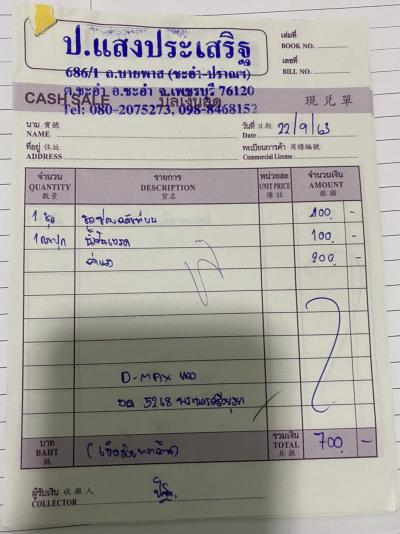 ป.แสงประเสริฐ
686/1 ถ.บายพาส (ชะอำ-ปราณฯ)
ต.ชะอำ อ.ชะอำ จ.เพชรบุรี 76120
Tel: 080-2075273, 098-8468152
เล่มที่
BOOK NO.
เลขที่
BILL NO.
CASH SALE บิลเงินสด 現兑單
นาม 寶號
NAME
วันที่ 日期
Date 22/9/63
ที่อยู่ 住址
ADDRESS
ทะเบียนการค้า 商標編號
Commercial License
จำนวน QUANTITY 數量
รายการ DESCRIPTION 貨名
หน่วยละ UNIT PRICE 備註
จำนวนเงิน AMOUNT 銀額
1 ชุด 400 -
1 กระปุก 100 -
ค่าแรง 200 -
D-MAX
5268
บาท BAHT 銖
รวมเงิน TOTAL 共銀 700 -
(เจ็ดร้อยบาทถ้วน)
ผู้รับเงิน 收銀人
COLLECTOR